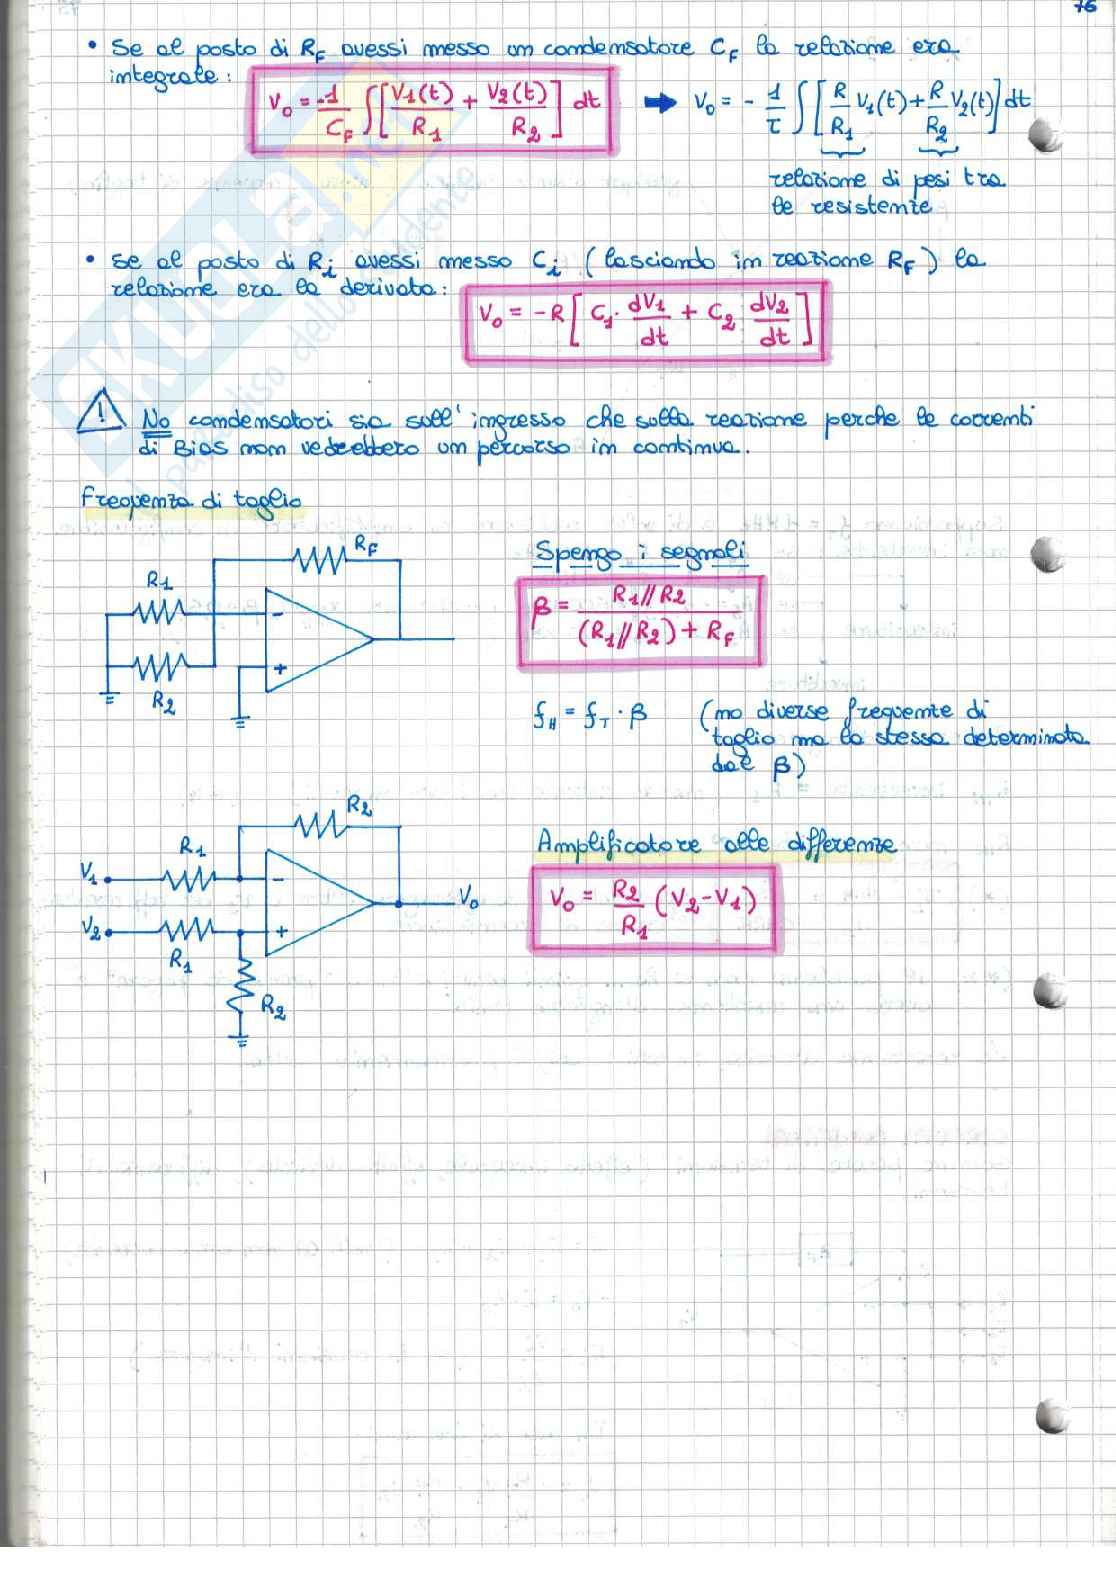 76
• Se al posto di RF avessi messo un condensatore CF la relazione era
integrale: Vo = -1/CF ∫[V1(t)/R1 + V2(t)/R2] dt → Vo = - 1/τ ∫[R/R1 V1(t) + R/R2 V2(t)] dt
relazione di pesi tra
le resistenze
• Se al posto di Ri avessi messo Ci (lasciando in reazione RF) la
relazione era la derivata: Vo = -R [C1· dV1/dt + C2 dV2/dt]
! No condensatori sia sull'ingresso che sulla reazione perche le correnti
di Bias non vedrebbero un percorso in continua.
Frequenza di taglio
RF
R1
-
+
R2
Spengo i segnali
β = R1//R2 / (R1//R2) + RF
fH = fT · β (no diverse frequenze di
taglio ma la stessa determinata
dal β)
R2
R1
V1
-
V2
+
Vo
R1
R2
Amplificatore alle differenze
Vo = R2/R1 (V2-V1)
SKUOLA.net
il paradiso dello studente